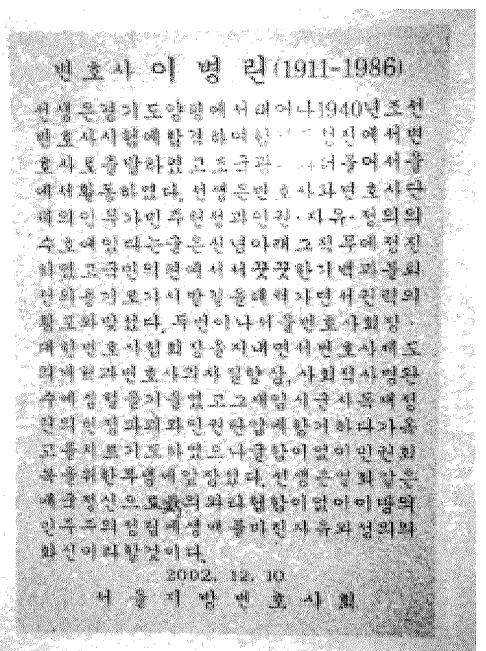 변호사 이 병 린 (1911-1986)
선생은 경기도 양평에서 태어나 1940년 조선
변호사시험에 합격하여 함 청진에서 변
호사로 출발하였고 조국광 더불어 서울
에서 활동하였다. 선생은 변호사와 변호사단
체의 임무가 민주헌정과 인권·자유·정의의
수호에 있다는 굳은 신념아래 그 직무에 정진
하였고 국민의 편에 서서 꿋꿋한 기백과 불퇴
전의 용기로 가시밭길을 헤쳐가면서 권력의
횡포와 맞섰다. 두번이나 서울변호사회장·
대한변호사협회장을 지내면서 변호사제도
의 개선과 변호사의 자질향상, 사회적 사명완
수에 심혈을 기울였고 그때 일시 군사독재정
권의 헌정파괴와 인권탄압에 항거하다가 옥
고를 치르기도 하였으나 굽힘이 없이 민권회
복을 위한 투쟁에 앞장섰다. 선생은
정신으로 불의와의 타협함이 없이 이땅의
민주주의 정립에 생애를 바친 자유와 정의의
화신이라 할 것이다.
2002. 12. 10
서 울 지 방 변 호 사 회